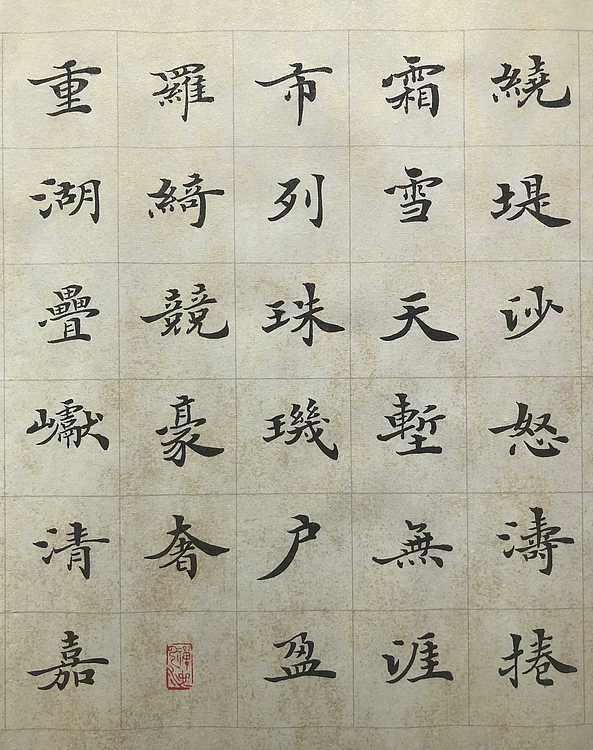 繞堤沙怒濤捲
霜雪天塹無涯
市列珠璣户盈
羅綺競豪奢
重湖疊巘清嘉